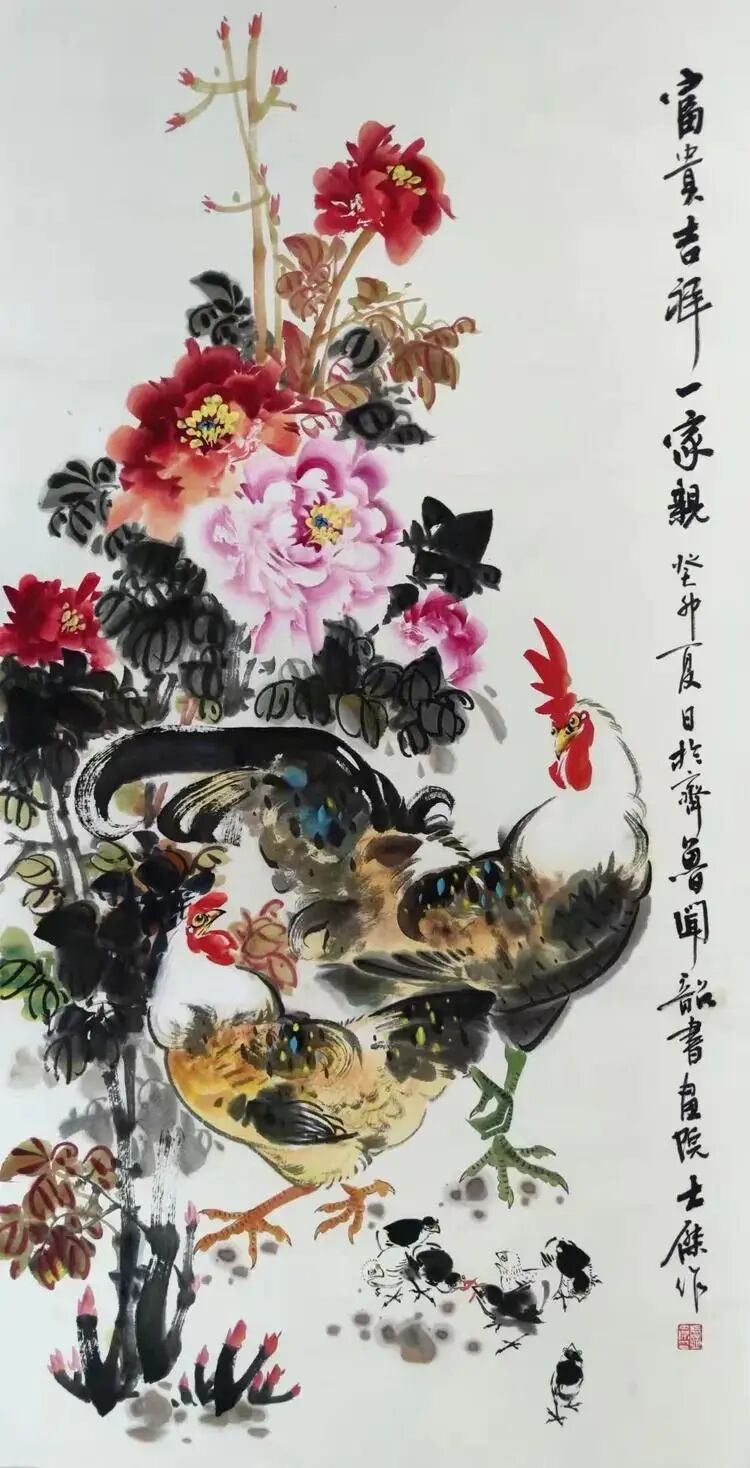 富貴吉祥一家親 癸卯夏日於齊魯聞韶書畫院 士傑作